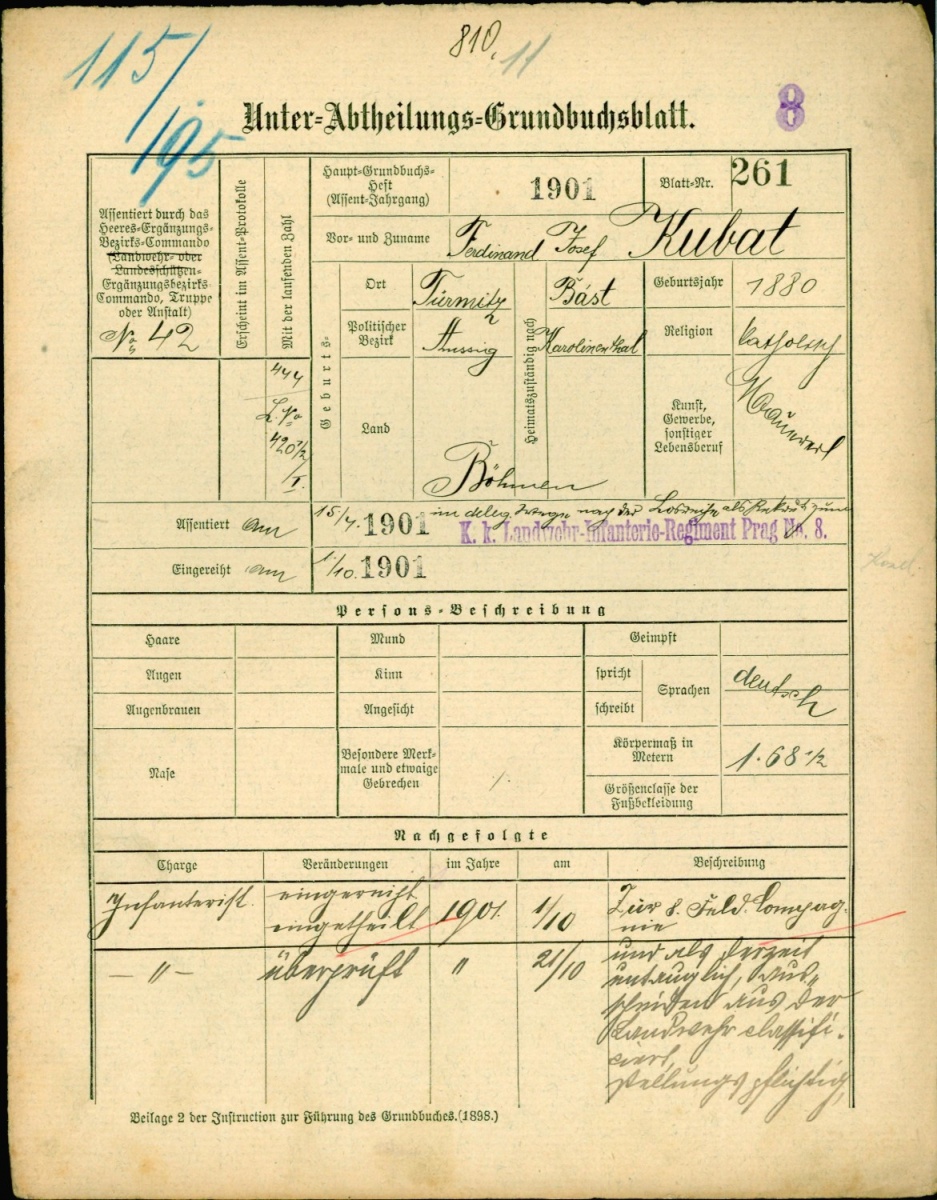 115/
195
810. 11
Unter-Abtheilungs-Grundbuchsblatt.
8
Assentiert durch das
Heeres-Ergänzungs-
Bezirks-Commando
(Landwehr- oder
Landesschützen-
Ergänzungsbezirks
Commando, Truppe
oder Anstalt)
No 42
Erscheint im Assent-Protokolle
Mit der laufenden Zahl
444
L. No
420 1/2
/I.
Haupt-Grundbuchs-
Heft
(Assent-Jahrgang)
1901
Blatt-Nr.
261
Vor- und Zuname
Ferdinand Josef Kubat
Geburts-
Ort
Türmitz
Politischer
Bezirk
Aussig
Land
Böhmen
Heimatszuständig nach
Bášt
Karolinenthal
Geburtsjahr
1880
Religion
catholisch
Kunst,
Gewerbe,
sonstiger
Lebensberuf
Maurer
Assentiert am
15/4. 1901
im deleg. Wege nach der Losreihe als Rekrut zum
K. k. Landwehr-Infanterie-Regiment Prag No. 8.
Eingereiht am
1/10. 1901
Persons-Beschreibung
Haare
Mund
Geimpft
Augen
Kinn
spricht
schreibt
Sprachen
deutsch
Augenbrauen
Angesicht
Nase
Besondere Merk-
male und etwaige
Gebrechen
Körpermaß in
Metern
1.68 1/2
Größenclasse der
Fußbekleidung
Nachgefolgte
Charge Veränderungen im Jahre am Beschreibung
Infanterist. eingereiht
eingetheilt 1901. 1/10 Zur 8. Feld. Compag-
nie
— " — überprüft " 21/10 und als derzeit
untauglich, Aus-
scheiden aus der
Landwehr classifi-
ciert,
stellungspflichtig,
Beilage 2 der Instruction zur Führung des Grundbuches. (1898.)